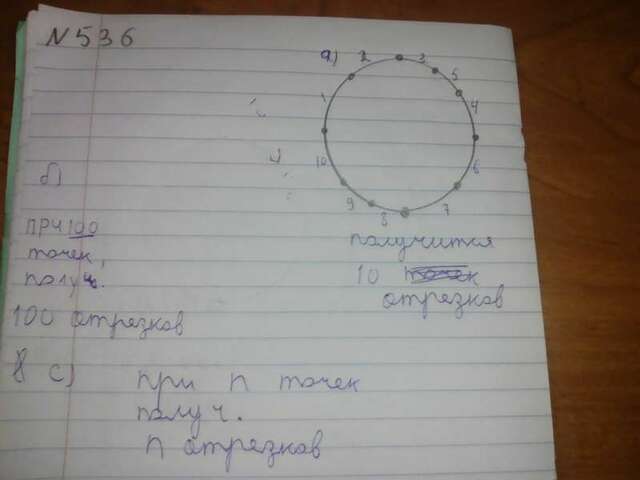 N536
а)
2
3
5
4
6
7
8
9
10
1
получится
10 точек
отрезков
б)
при 100
точек,
получ.
100 отрезков
в с) при n точек
получ.
n отрезков